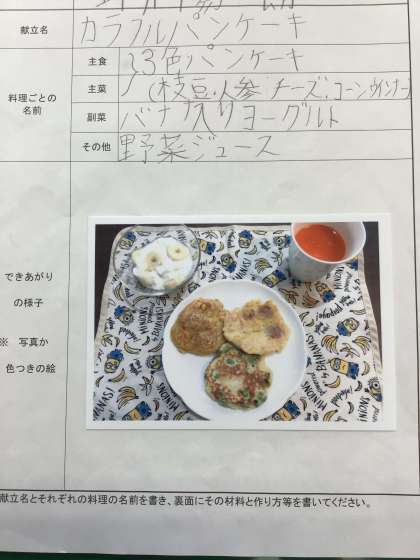 献立名
カラフルパンケーキ
主食
3色パンケーキ
料理ごとの
名前
主菜
(枝豆・人参・チーズ・コーンウインナー)
副菜
バナナ入りヨーグルト
その他
野菜ジュース
できあがり
の様子
※ 写真か
色つきの絵
MINIONS
BANANAS!
献立名とそれぞれの料理の名前を書き、裏面にその材料と作り方等を書いてください。